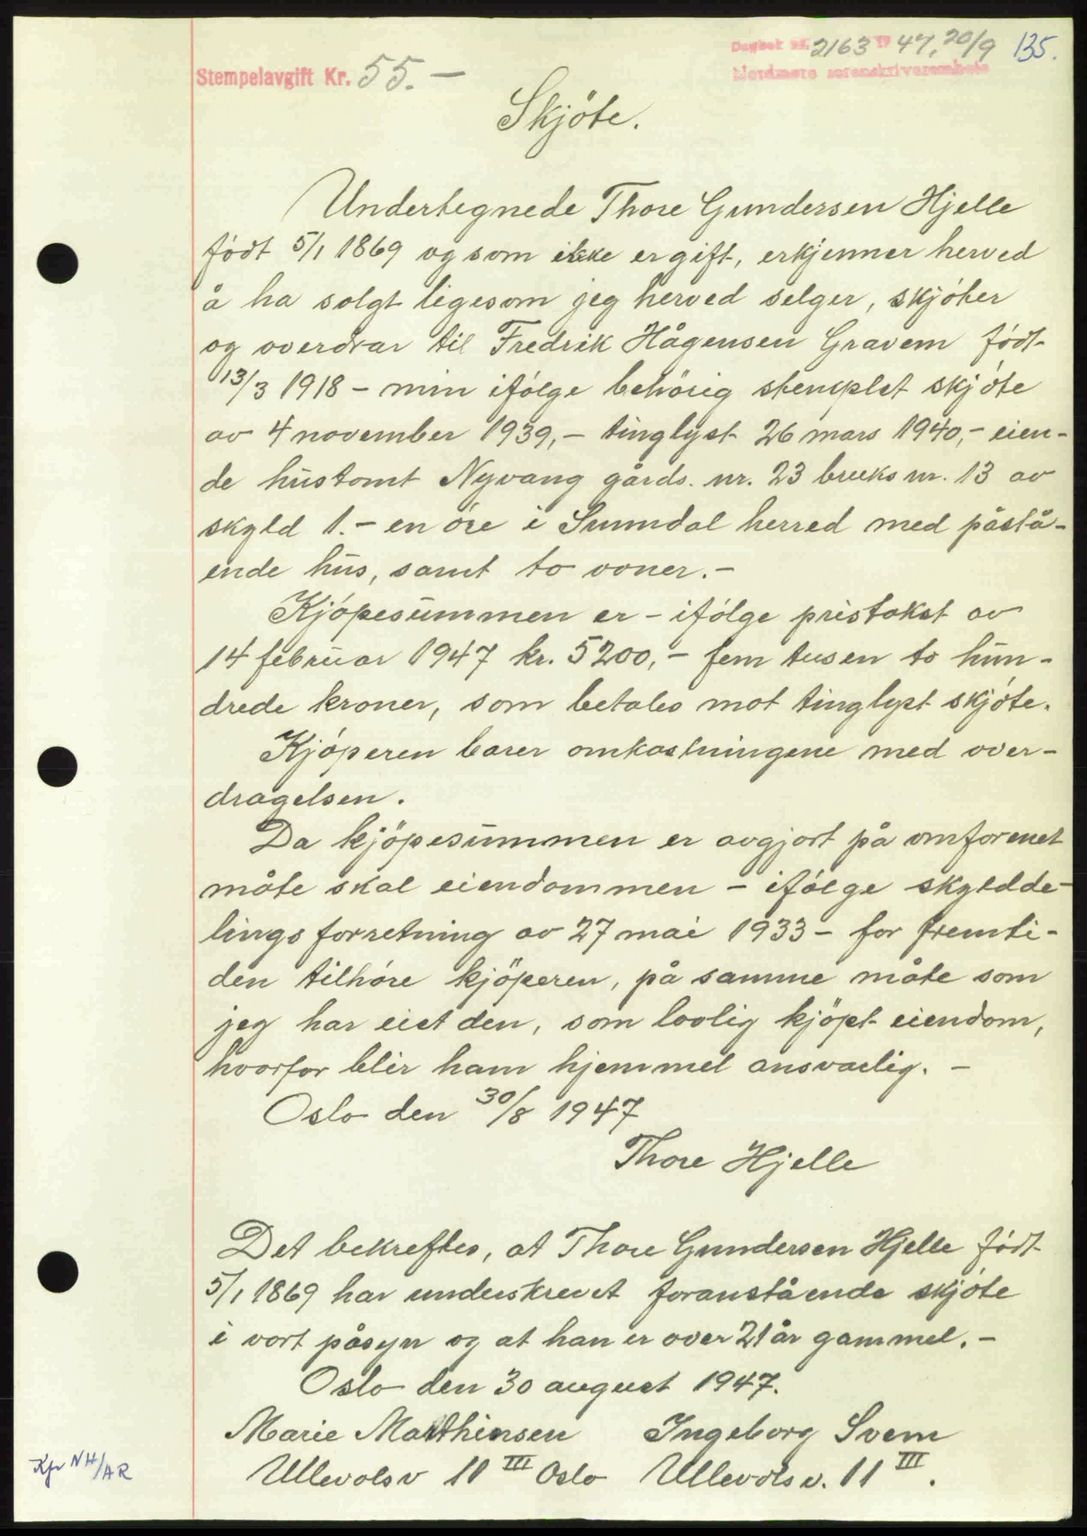 Dagbok nr. 2163 19 47, 20/9 135.
Nordmøre sorenskriverembete
Stempelavgift Kr. 55.-
Skjöte.
Undertegnede Thore Gundersen Hjelle
født 5/1 1869 og som ikke er gift, erkjenner herved
å ha solgt ligesom jeg herved selger, skjöter
og overdrar til Fredrik Hågensen Gravem født
13/3 1918 - min ifölge behörig stemplet skjöte
av 4 november 1939,- tinglyst 26 mars 1940,- eien-
de hustomt Nyvang gårds. nr. 23 bruks nr. 13 av
skyld 1.- en öre i Sunndal herred med påstå-
ende hus, samt to ovner.-
Kjöpesummen er - ifölge pristakst av
14 februar 1947 kr. 5200,- fem tusen to hun-
drede kroner, som betales mot tinglyst skjöte.
Kjöperen bærer omkostningene med over-
dragelsen.
Da kjöpesummen er avgjort på omforenet
måte skal eiendommen - ifölge skyldde-
lings forretning av 27 mai 1933 - for fremti-
den tilhöre kjöperen, på samme måte som
jeg har eiet den, som lovlig kjöpt eiendom,
hvorfor blir ham hjemmel ansvarlig. -
Oslo den 30/8 1947
Thore Hjelle
Det bekreftes, at Thore Gundersen Hjelle født
5/1 1869 har underskrevet foranstående skjöte
i vort påsyn og at han er over 21 år gammel. -
Oslo den 30 august 1947.
Marie Mathiesen Ingeborg Svem
Ullevolsv 11 III Oslo Ullevolsv. 11 III.
Kfr NH/AR